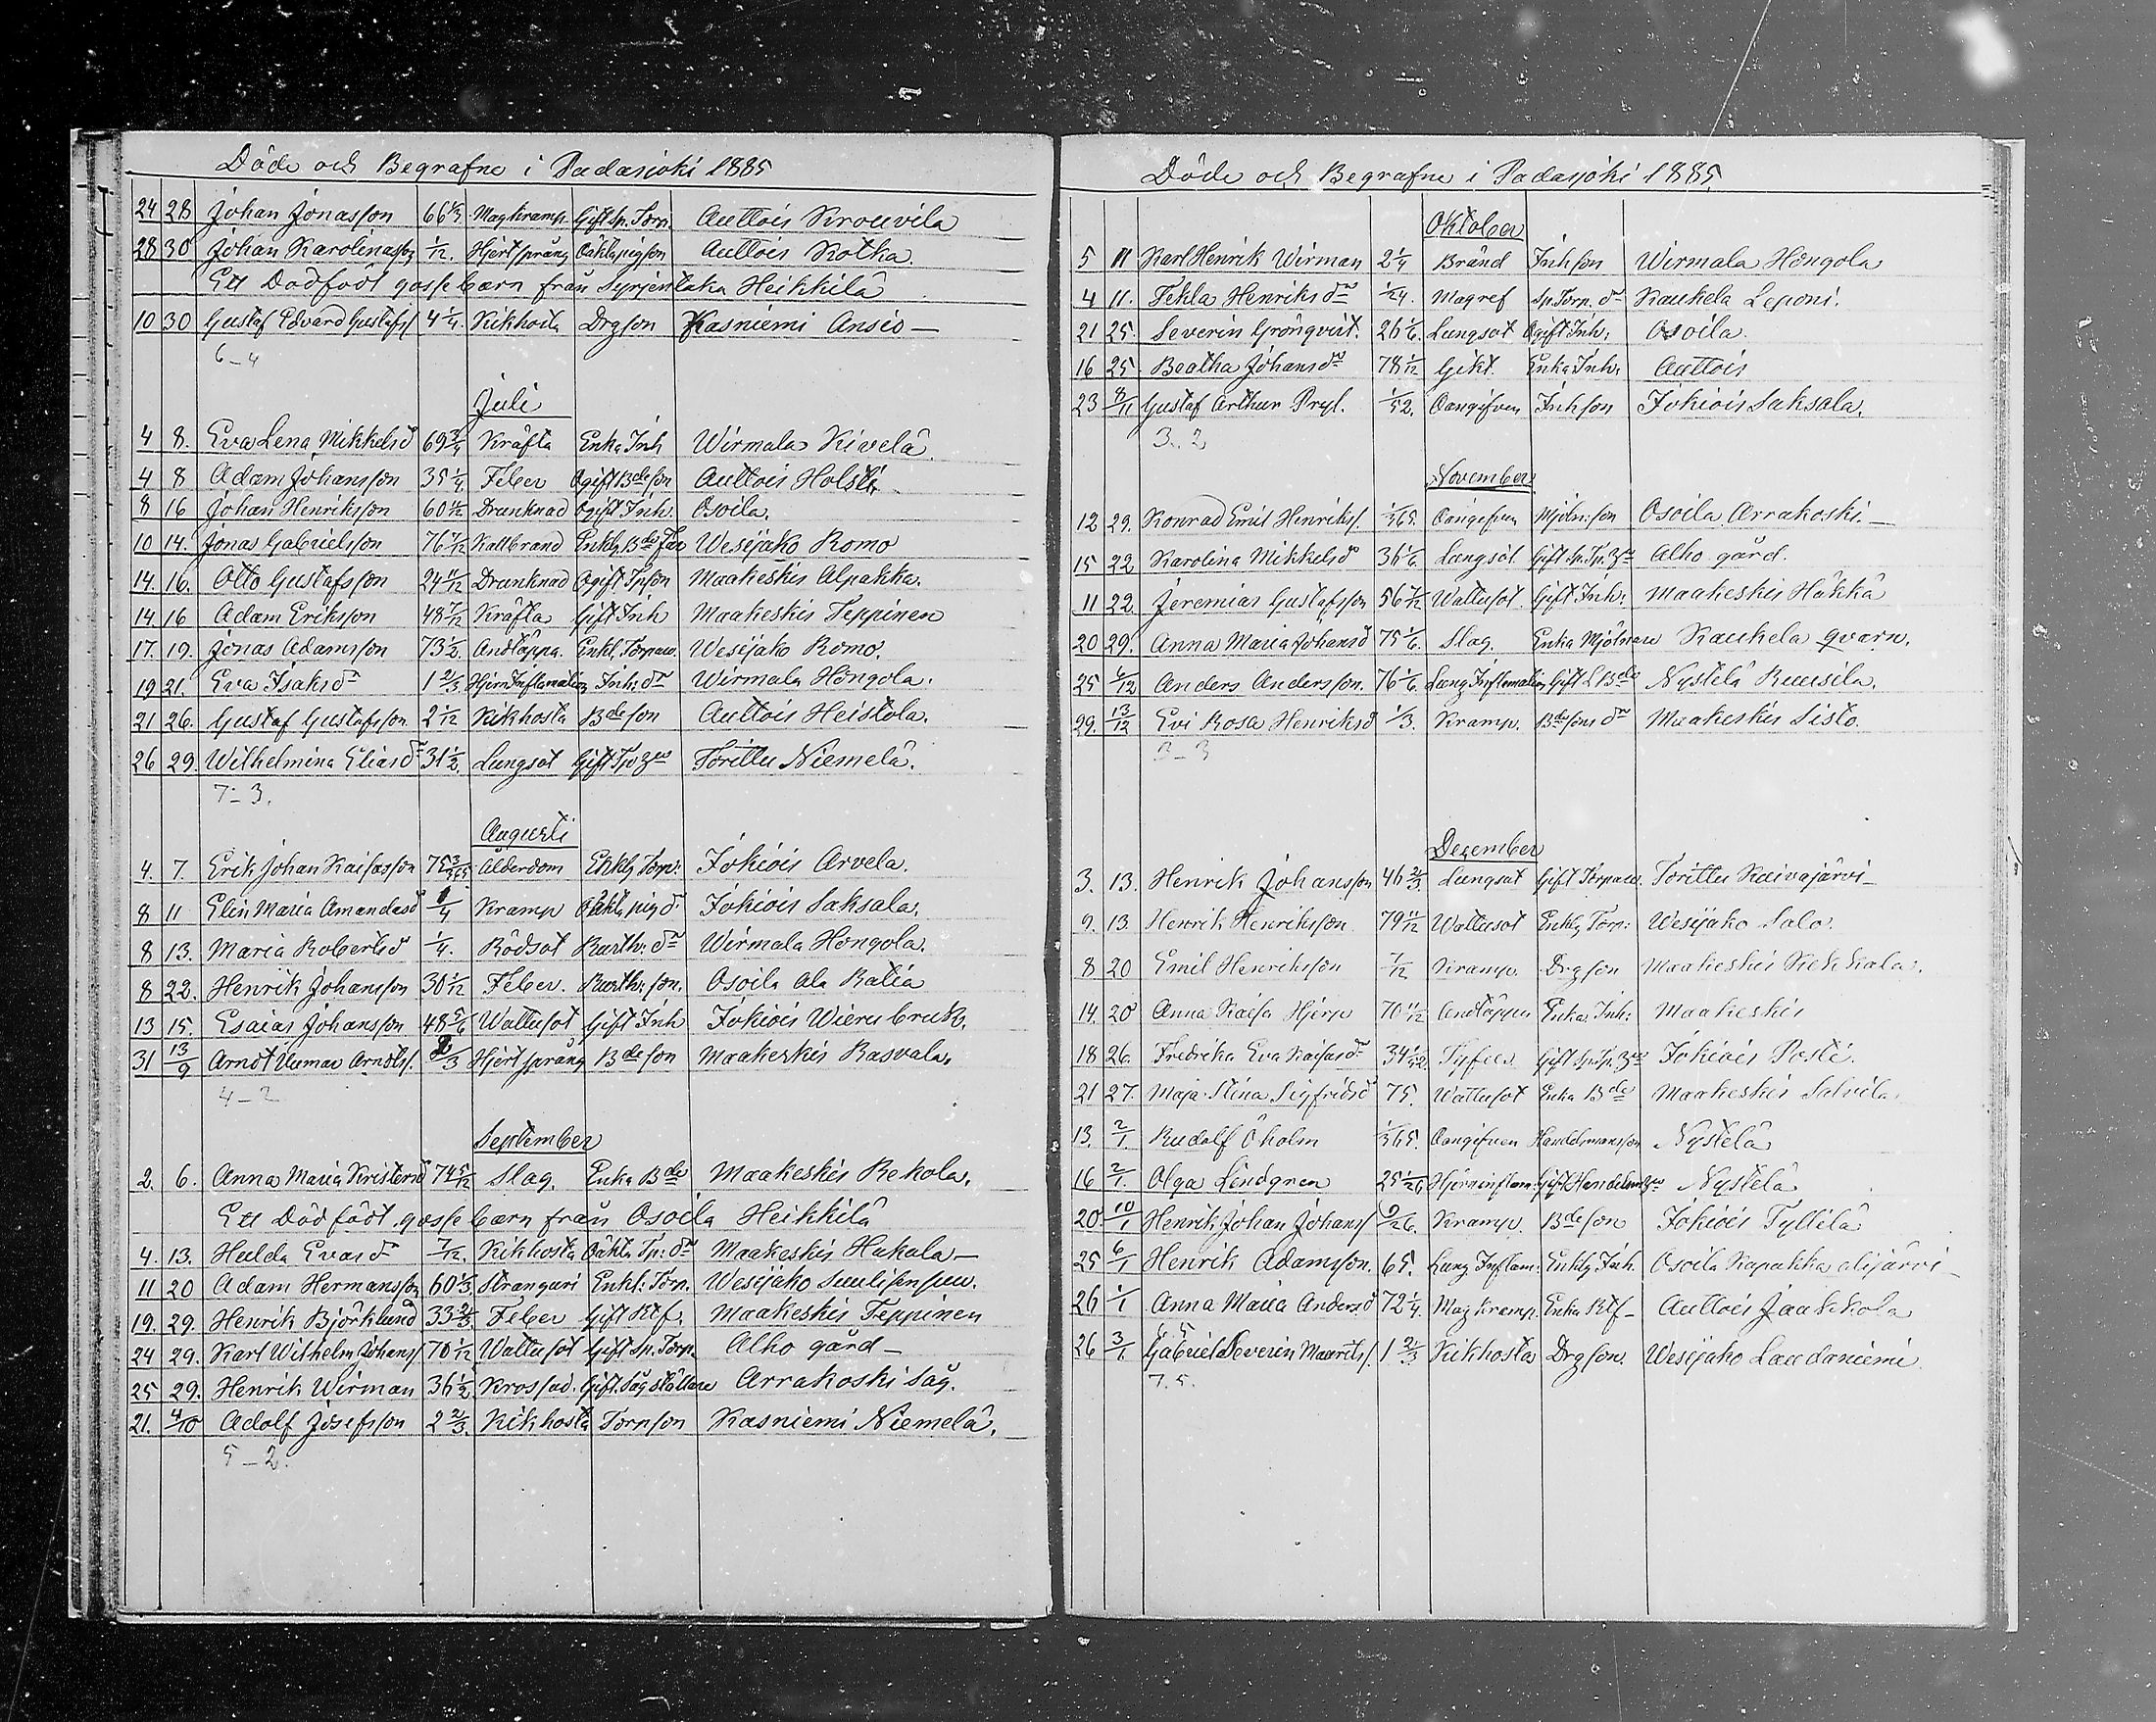 Döde och Begrafne i Padasjoki 1885
24 28 Johan Jonasson 66 1/3 Magkramp Gift Sp. Torp. Auttois Krouvila
28 30 Johan Karolinasson 1/12. Hjertsprång Oäkta pigson Auttois Kotka
Ett Dödfödt gossebarn från Syrjentaka Heikkilä
10 30 Gustaf Edvard Gustafs/ 4 1/4. Kikhosta Drgson Kasniemi Ansio —
6–4
Juli
4 8. Eva Lena Mikkelsd 69 3/4 Kräfta Enka Inh Wirmala Kivelä
4 8 Adam Johansson 35 1/4 Feber Ogift Bdeson Auttois Holsti
8 16 Johan Henriksson 60 1/12 Drunknad Ogift Inh: Osoila.
10 14. Jonas Gabrielsson 76 7/12 Kallbrand Enkl. Bde Far Wesijako Romo
14. 16. Otto Gustafsson 24 11/12 Drunknad Ogift Tpson Maakeskis Alpakka.
14 16 Adam Eriksson 48 7/12 Kräfta Gift Inh Maakeskis Teppinen
17. 19. Jonas Adamsson 73 1/2. Andtäppa. Enkl. Torpare. Wesijako Romo.
19 21. Eva Isaksdr 1 2/3 Hjern Inflamation Inh: dr Wirmala Hongola.
21 26. Gustaf Gustafsson 2 1/12 Kikhosta Bdeson Auttois Heistola.
26 29. Wilhelmina Eliasdr 31 1/2. Lungsot Gift Tp Torittu Niemelä.
7–3.
Augusti
4. 7. Erik Johan Kaisasson 75 3/365 Ålderdom Enklg Torp: Jokiois Arvela.
8 11 Elin Maria Amandasd 1/4 Kramp Oäkta pig d. Jokiois Saksala.
8 13. Maria Robertsd 1/4. Rödsot Backth: dr Wirmala Hongola.
8 22. Henrik Johansson 30 1/12 Feber. Backth: son. Osoila Ala Ratia
13 15. Esaias Johansson 48 5/6 Wattusot Gift Inh Jokiois Wierubruk.
31 13/9 Arndt Arndts/. 2/3 Hjertsprång Bdeson Maakeskis Rasvala.
4–2
September
2. 6. Anna Maria Kristersd 74 5/12 Slag. Enka Bde Maakeskis Rekola.
Ett Dödfödt gossebarn från Osoila Heikkilä
4. 13. Hulda Evasdr 7/12. Kikhosta Oäkta Tp: dr Maakeskis Hukala —
11 20 Adam Hermansson 60 1/3 Stranguri Enkl: Torp. Wesijako
19. 29. Henrik Björklund 33 2/3 Feber Gift Maakeskis Teppinen
24 29. Karl Wilhelm Johans/ 70 1/12 Wattusot Gift Sp. Torp. Alho gård —
25 29. Henrik Wirman 36 1/2 Krossad. Gift Sågställare Arrakoski såg.
21. 4/10 Adolf Josefsson 2 2/3. Kikhosta Torpson Kasniemi Niemelä.
5–2.
Döde och Begrafne i Padasjoki 1885
Oktober
5 11 Karl Henrik Wirman 2 1/4 Bränd Inhson Wirmala Hongola
4 11. Tekla Henriksdr 1/24. Magref Sp Torp. dr Kaukela Leponi.
21 25. Severin Grönqvist. 26 1/6. Lungsot Ogift Inh: Osoila.
16 25. Beatha Johansdr 78 1/12 Gikt. Enka Inh. Auttois
23 8/11 Gustaf Arthur Pryl. 1/52. Oangifven Inhson Jokiois Saksala.
3..2
November
12 29. Konrad Emil Henriks/. 1/365. Oangifven Mjöln:son Osoila Arrakoski. —
15 22 Karolina Mikkelsd 36 1/6. Lungsot Gift Sp. Tp. Alho gård.
11 22. Jeremias Gustafsson 56 7/12 Wattusot. Gift Inh: Maakeskis Häkkä
20 29. Anna Maria Johansd 75 1/6. Slag. Enka Mjölnare Kaukela qvarn.
25 6/12 Anders Andersson. 76 1/6. Lung Inflamation Gift L Bde Nystelä Ruusila.
29. 13/12 Evi Rosa Henriksd 1/3. Kramp. Bdesons dr Maakeskis Sisto.
3–3
December
3. 13. Henrik Johansson 46 2/3. Lungsot Gift Torpare. Torittu Kaivajärvi —
9. 13. Henrik Henriksson 79 11/12 Wattusot Enklg Torp: Wesijako Salo.
8 20 Emil Henriksson 7/12 Kramp. Drgson Maakeskis Kekkala.
14. 20 Anna Kaisa Hjerp 70 11/12 Andtäppa Enka. Inh: Maakeskis
18 26. Fredrika Eva Kaisasdr 34 1/52 Tyfus. Gift Sp. Tp. Jokiois Posti.
21 27. Maja Stina Sigfridsd 75. Wattusot Enka Bde Maakeskis Salvila.
13. 2/1. Rudolf Öholm 1/365. Oangifven Handelsmansson Nystelä
16 2/1. Olga Lindgren 25 1/26 Hjerninflam: Gift Nystelä
20. 10/1 Henrik Johan Johans/ 9/26. Kramp. Bdeson Jokiois Tyllilä
25 6/1 Henrik Adamsson. 65. Lung Inflam: Enklg Inh. Osoila Kapakka alijärvi —
26 1/1 Anna Maria Andersd 72 1/4. Mag Kramp. Enka Auttois Jaakkola
26 3/1. Gabriel Severin Maurits/. 1 2/3 Kikhosta Drgson. Wesijako Laudaniemi
7.5.